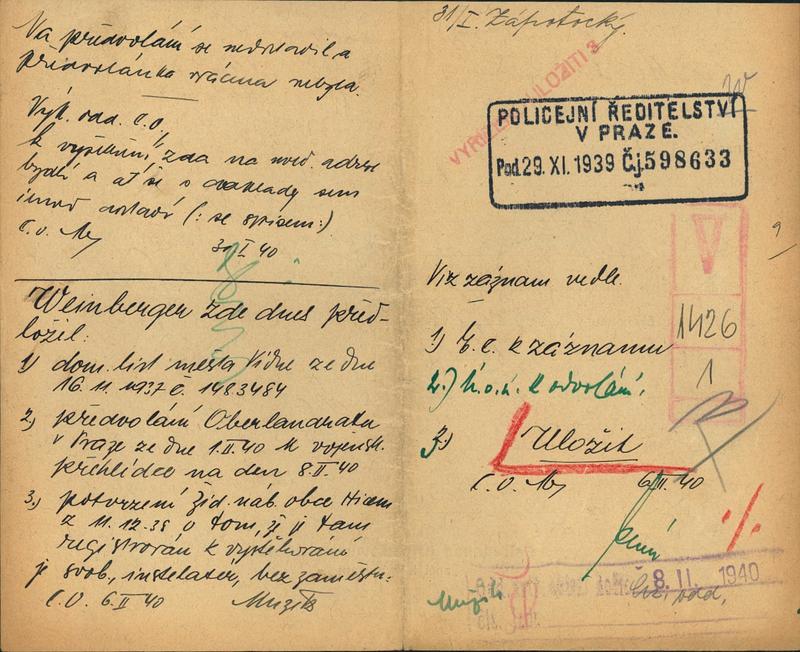 Na předvolání se nedostavil a
předvolánka vrácena nebyla.
Výk. odd. C.O.
k vyšetření, zda na uved. adrese
bydlí a ať se s doklady sem
ihned dostaví (: se spisem:)
C.O.
30/I 40
Weinberger zde dnes před-
ložil:
1) dom. list města Vídně ze dne
16. 11. 1937 č. 1483484
2) předvolání Oberlandrata
v Praze ze dne 1.II.40 k vojensk.
přehlídce na den 8.II.40
3.) potvrzení žid. náb. obce
z 11.12.39 o tom, že je tam
registrován k vystěhování
je svob., instalatér, bez zaměstn:
C.O. 6.II 40
31/I. Zápotocký.
ULOŽITI 3
POLICEJNÍ ŘEDITELSTVÍ
V PRAZE.
Pod. 29. XI. 1939 Čj. 598633
V
1426
1
Viz záznam vedle.
1) B.č. k záznamu
2.) k odvolání.
3.) Uložit
C.O.
6/II. 40
8. II. 1940